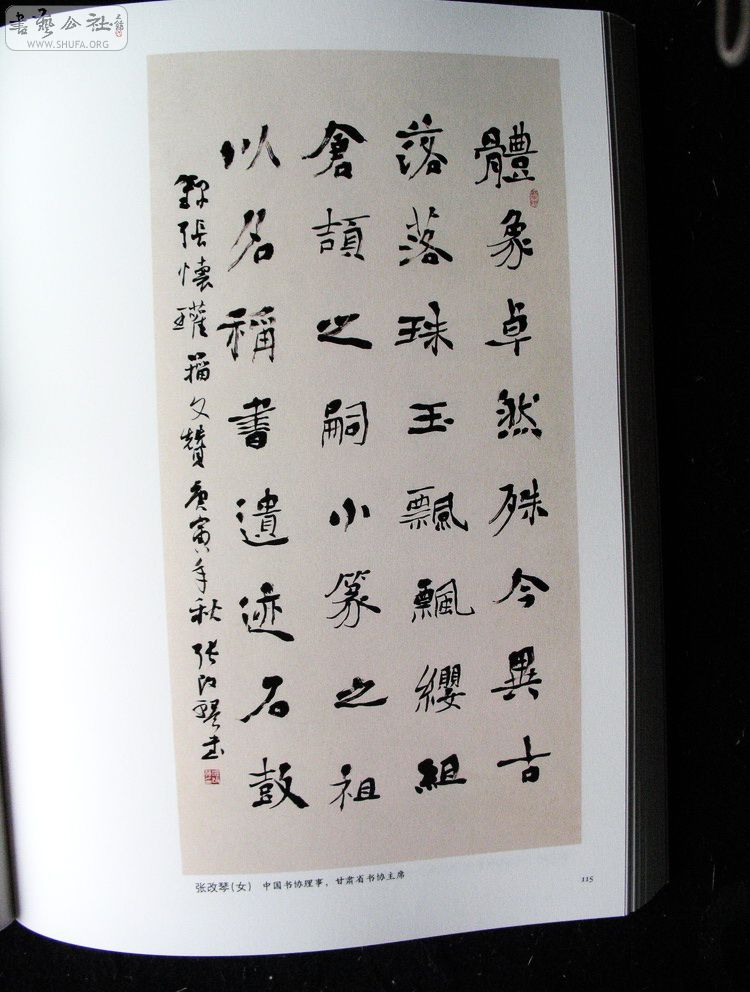 書藝公社
WWW.SHUFA.ORG
體象卓然殊今異古
落落珠玉飄飄纓組
倉頡之嗣小篆之祖
以名稱書遺迹石鼓
録張懷瓘籀文贊庚寅年秋張改琴書
张改琴(女) 中国书协理事，甘肃省书协主席
115